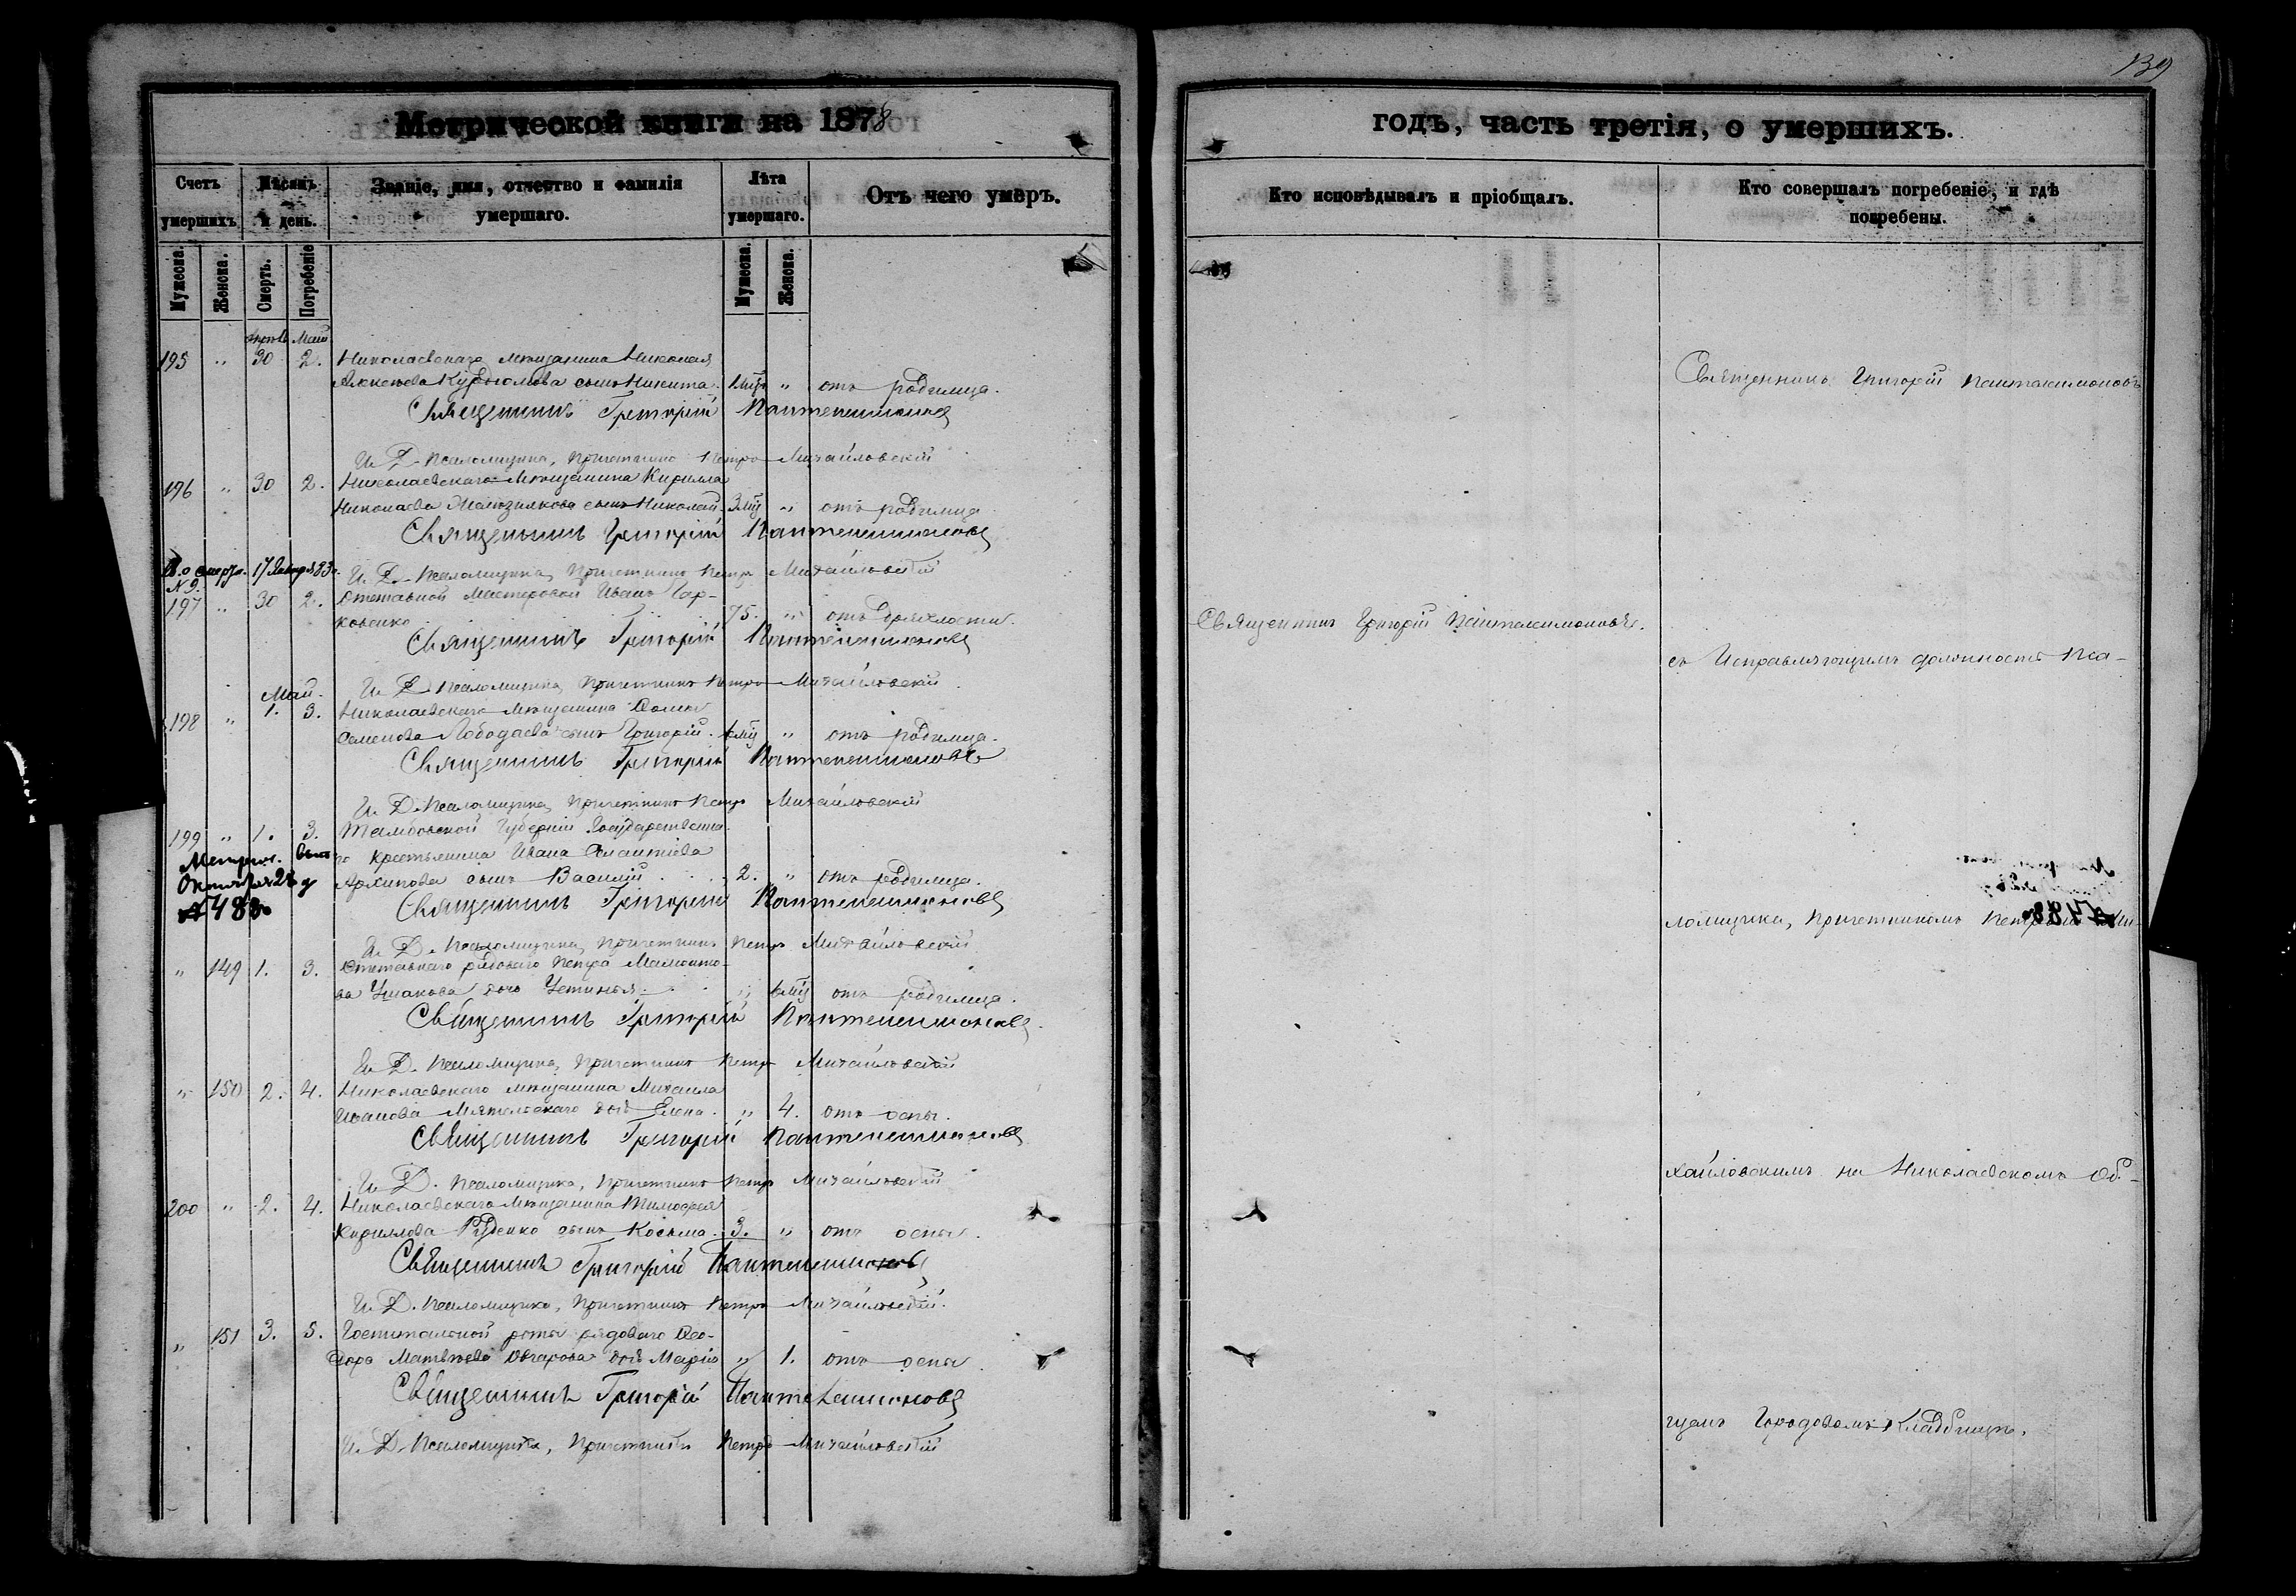 139
Метрической книги на 1878
годъ, часть третія, о умершихъ.
Счетъ умершихъ.
Мѣсяцъ и день.
Званіе, имя, отчество и фамилія умершаго.
Лѣта умершаго.
Отъ чего умеръ.
Кто исповѣдывалъ и пріобщалъ.
Кто совершалъ погребеніе, и гдѣ погребены.
Мужеска. Женска. Смерть. Погребеніе Мужеска. Женска.
Май
195 " 30 2. Николаевскаго мѣщанина Николая
Алексѣева Курдюмова сынъ Никита. " отъ родимца.
Священникъ Григорій Пантелеимоновъ
И. Д. Псаломщика, Причетникъ Петръ Михайловскій
196 " 30 2. Николаевскаго Мѣщанина Кирилла
Николаева сынъ Николай. " отъ родимца
Священникъ Григорій Пантелеимоновъ
17 Января 83
N 9.
И. Д. Псаломщика, Причетникъ Петръ Михайловскій
197 " 30 2. Отставной Мастеровой Иванъ Гар-
ковенко 75. " отъ дряхлости.
Священникъ Григорій Пантелеимоновъ
И. Д. Псаломщика, Причетникъ Петръ Михайловскій
Май.
198 " 1. 3. Николаевскаго Мѣщанина
Семенова Лободаева сынъ Григорій. " отъ родимца.
Священникъ Григорій Пантелеимоновъ
И. Д. Псаломщика, Причетникъ Петръ Михайловскій
199 " 1. 3. Тамбовской Губерніи Государственна-
го крестьянина Ивана
Архипова сынъ Василій 2. " отъ родимца.
Метрич. выд
Октября 28 д
№ 488
Священникъ Григорій Пантелеимоновъ
И. Д. Псаломщика, Причетникъ Петръ Михайловскій
" 149 1. 3. Отставнаго рядоваго Петра Мамонто-
ва Ушакова дочь Устинья. " отъ родимца.
Священникъ Григорій Пантелеимоновъ.
И. Д. Псаломщика, Причетникъ Петръ Михайловскій
" 150 2. 4. Николаевскаго мѣщанина Михаила
Иванова дочь Елена. " 4. отъ оспы.
Священникъ Григорій Пантелеимоновъ
И. Д. Псаломщика, Причетникъ Петръ Михайловскій
200 " 2. 4. Николаевскаго Мѣщанина Тимофея
Кириллова Руденко сынъ Косьма. 3. " отъ оспы.
Священникъ Григорій Пантелеимоновъ
И. Д. Псаломщика, Причетникъ Петръ Михайловскій.
" 151 3. 5. Госпитальной роты рядоваго Ѳео-
дора Матвѣева Овчарова дочь Марія " 1. отъ оспы.
Священникъ Григорій Пантелеимоновъ
И. Д. Псаломщика, Причетникъ Петръ Михайловскій
Священникъ Григорій Пантелеимоновъ.
Священникъ Григорій Пантелеимоновъ
съ Исправляющимъ должность Пса-
ломщика, Причетникомъ Петромъ Ми-
хайловскимъ на Николаевскомъ Об-
щемъ Городовомъ Кладбищѣ.